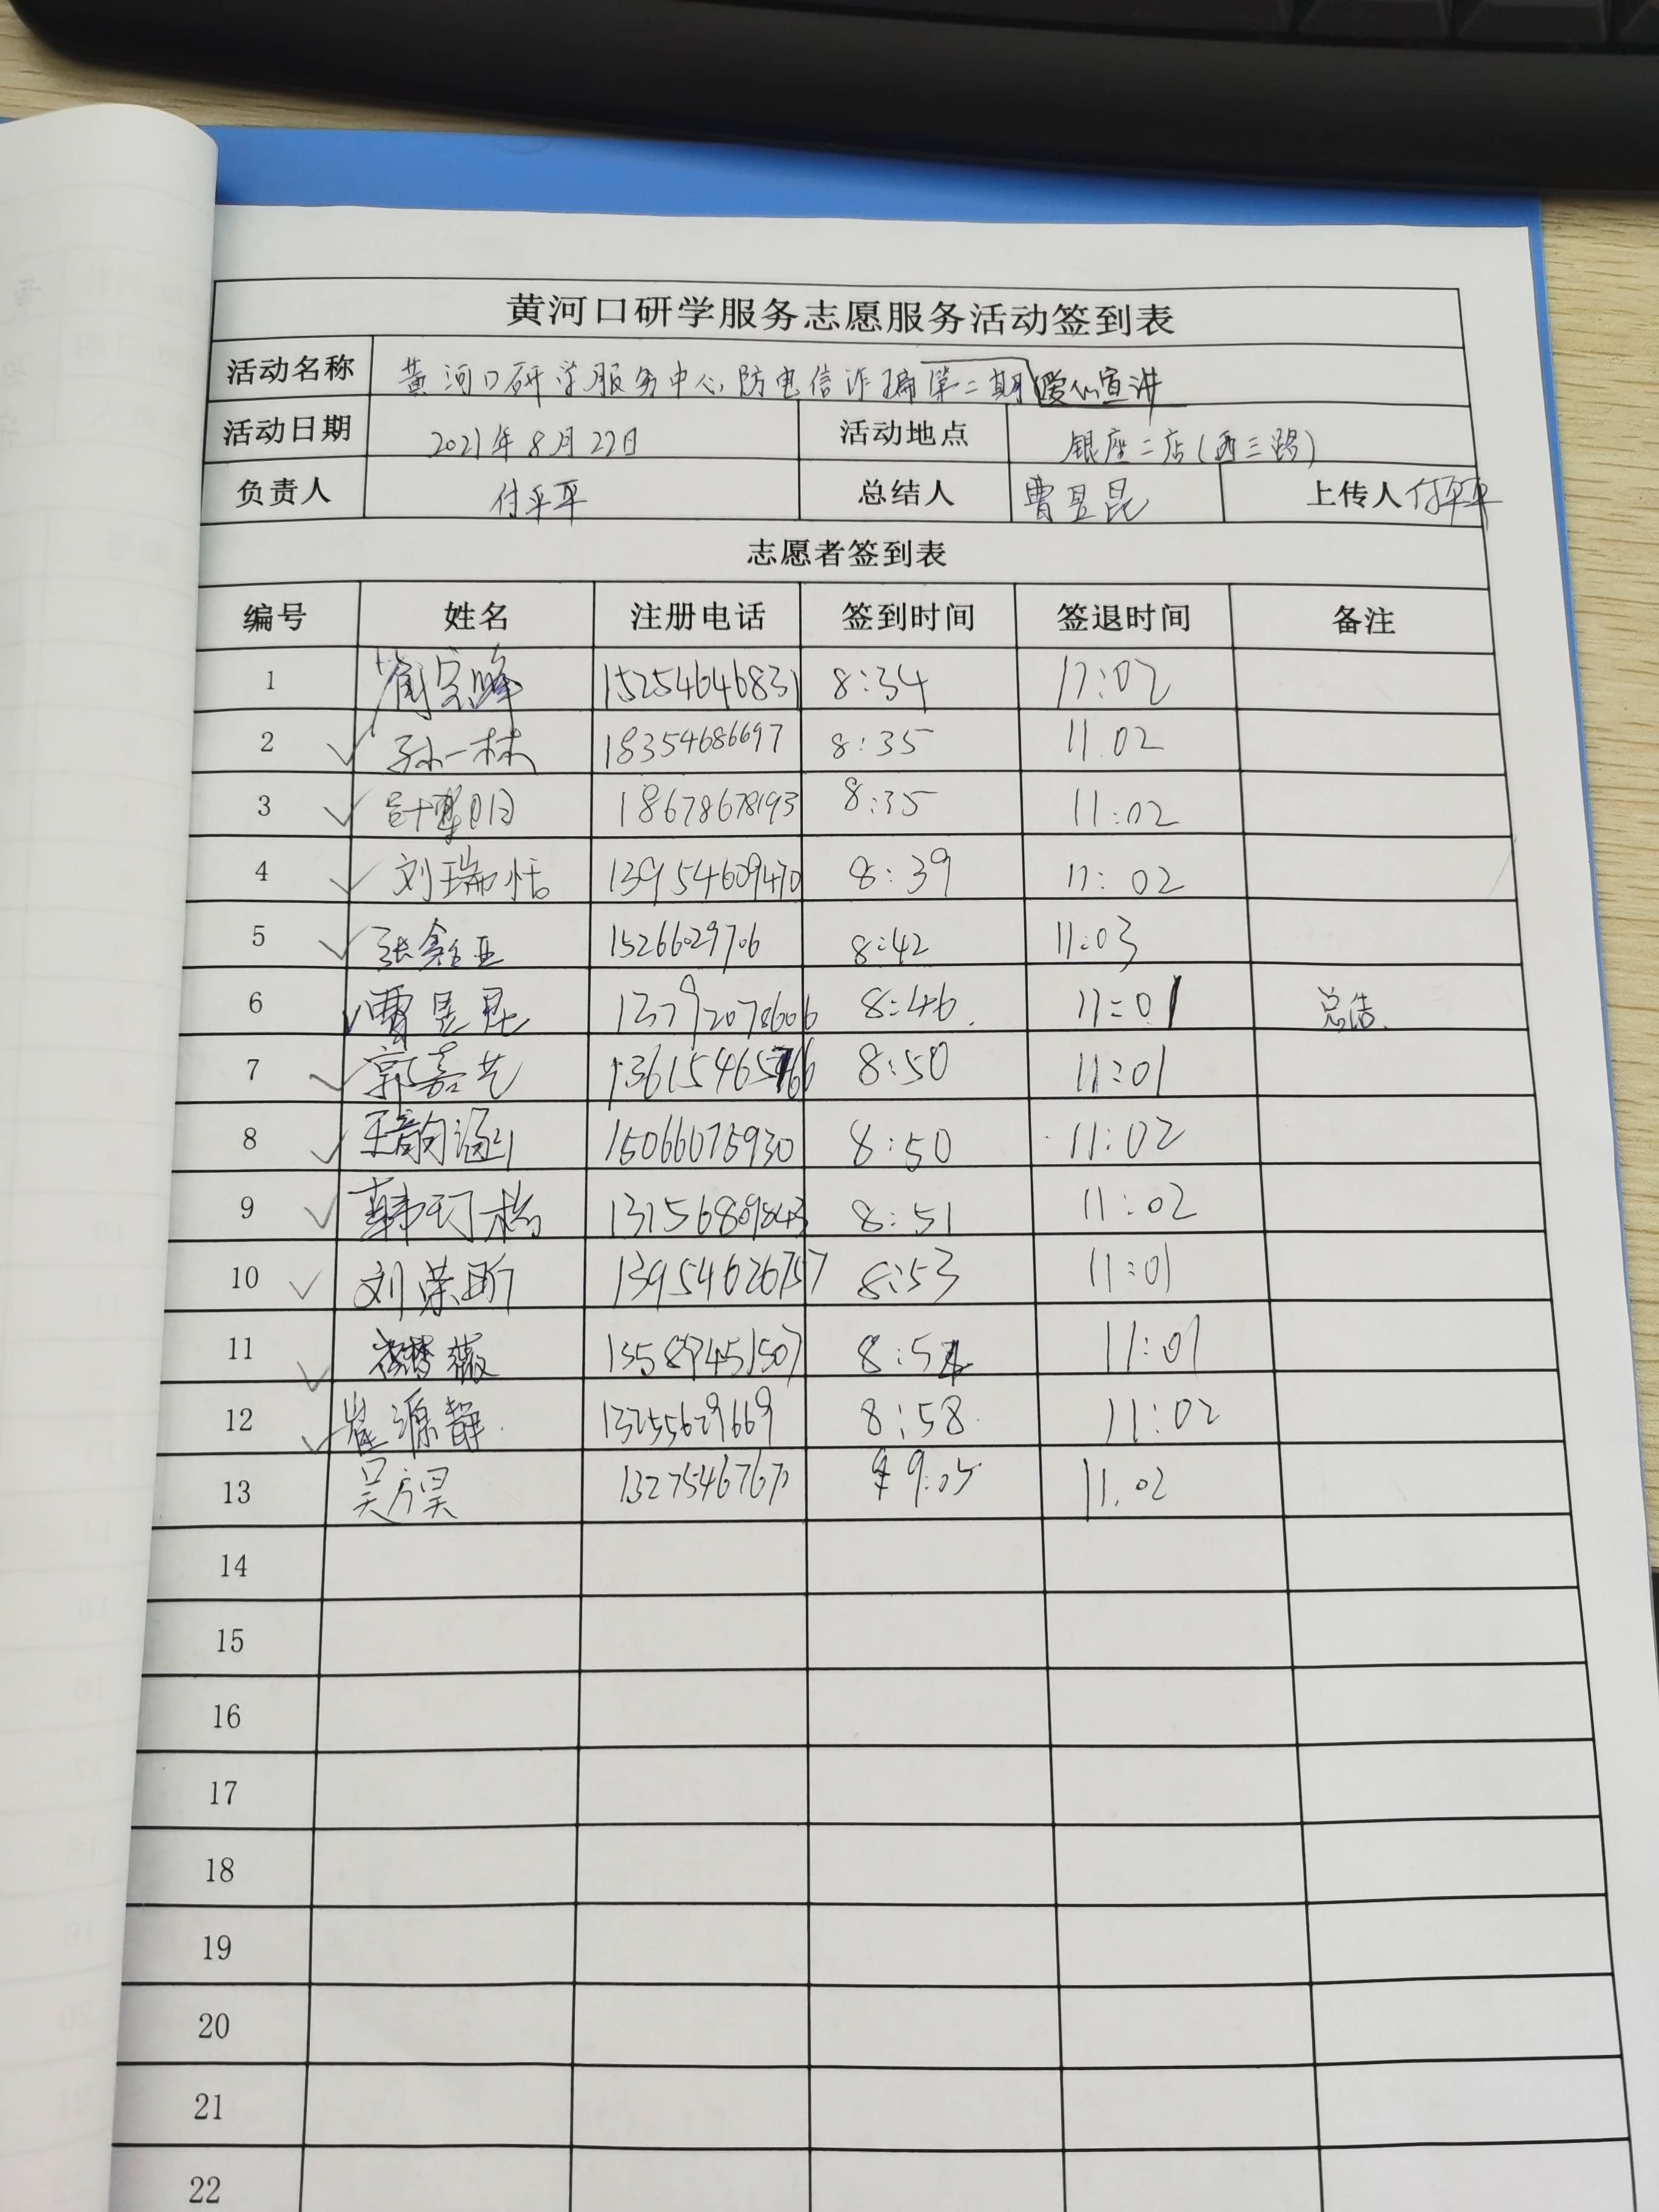 黄河口研学服务志愿服务活动签到表
活动名称 黄河口研学服务中心防电信诈骗第二期爱心宣讲
活动日期 2021年8月22日 活动地点 银座二店(西三路)
负责人 付平平 总结人 曹昱昆 上传人 付平平
志愿者签到表
编号 姓名 注册电话 签到时间 签退时间 备注
1 15254646831 8:34 11:02
2 孙一林 18354686697 8:35 11:02
3 18678678193 8:35 11:02
4 刘瑞恬 13954609470 8:39 11:02
5 张鑫亚 1526629706 8:42 11:03
6 曹昱昆 13792078606 8:46 11:01 总结
7 郭嘉艺 13615465766 8:50 11:01
8 王韵涵 15066075930 8:50 11:02
9 8:51 11:02
10 13954626757 8:53 11:01
11 13589451507 11:01
12 崔源静 13255629669 8:58 11:02
13 吴方昊 9:05 11:02
14
15
16
17
18
19
20
21
22